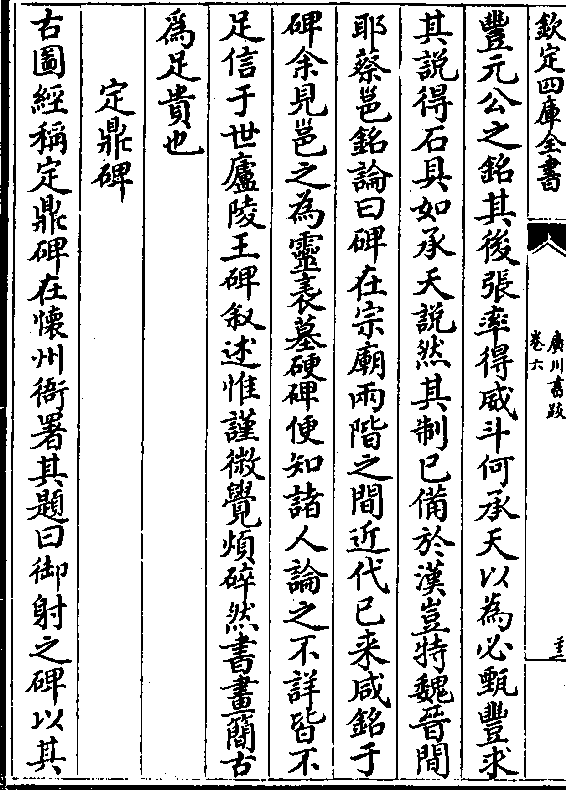 欽定四庫全書
廣川書跋
卷六
豐元公之銘其後張率得威斗何承天以為必甄豐求
其說得石具如承天說然其制已備於漢豈特魏晉間
耶蔡邕銘論曰碑在宗廟兩階之間近代已来咸銘于
碑余見邕之為靈表墓硬碑便知諸人論之不詳皆不
足信于世廬陵王碑叙述惟謹微覺煩碎然書畫簡古
爲足貴也
定鼎碑
古圖經稱定鼎碑在懷州衙署其題曰御射之碑以其